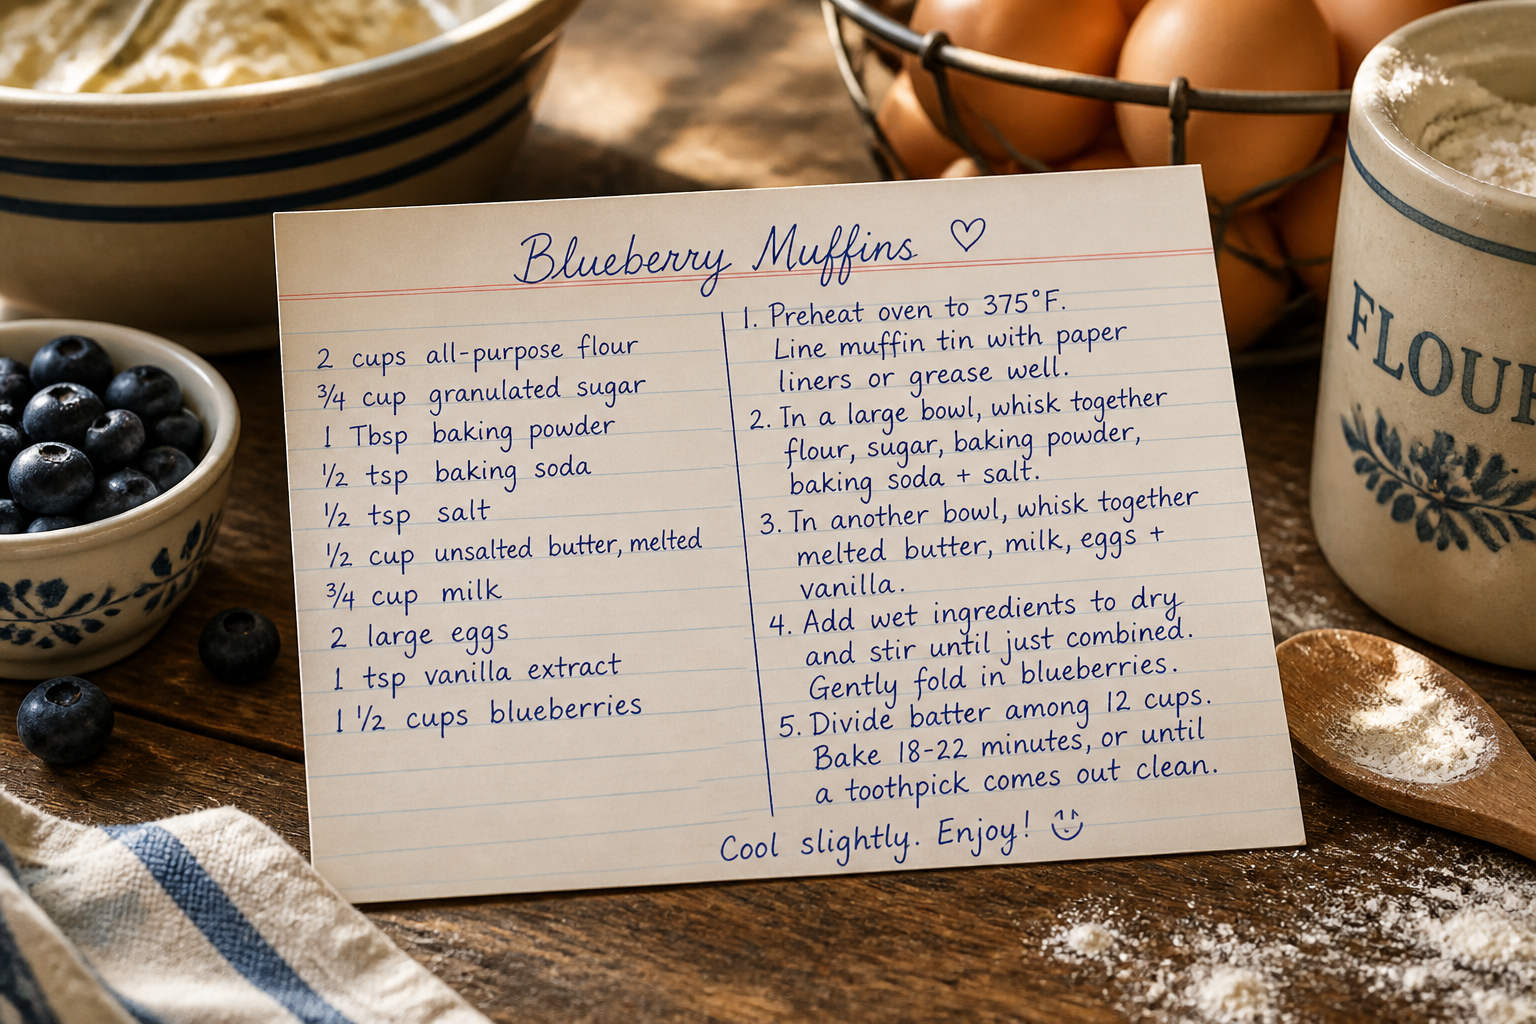 Blueberry Muffins ♡
2 cups all-purpose flour
¾ cup granulated sugar
1 Tbsp baking powder
½ tsp baking soda
½ tsp salt
½ cup unsalted butter, melted
¾ cup milk
2 large eggs
1 tsp vanilla extract
1 ½ cups blueberries
1. Preheat oven to 375°F.
Line muffin tin with paper
liners or grease well.
2. In a large bowl, whisk together
flour, sugar, baking powder,
baking soda + salt.
3. In another bowl, whisk together
melted butter, milk, eggs +
vanilla.
4. Add wet ingredients to dry
and stir until just combined.
Gently fold in blueberries.
5. Divide batter among 12 cups.
Bake 18-22 minutes, or until
a toothpick comes out clean.
Cool slightly. Enjoy! ☺
FLOUR